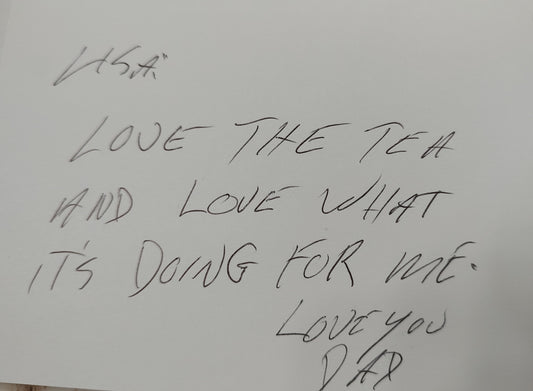 LISA:
LOVE THE TEA
AND LOVE WHAT
IT'S DOING FOR ME.
LOVE YOU
DAD